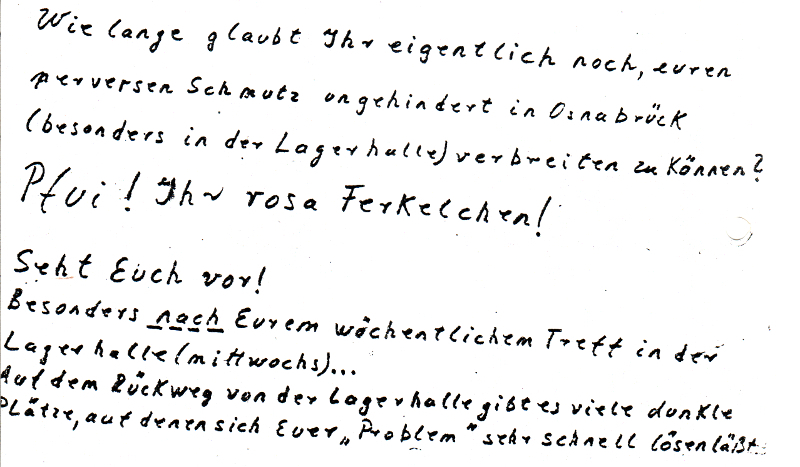 Wie lange glaubt Ihr eigentlich noch, euren
perversen Schmutz ungehindert in Osnabrück
(besonders in der Lagerhalle) verbreiten zu können?
Pfui! Ihr rosa Ferkelchen!
Seht Euch vor!
Besonders nach Eurem wöchentlichem Treff in der
Lagerhalle (mittwochs)...
Auf dem Rückweg von der Lagerhalle gibt es viele dunkle
Plätze, auf denen sich Euer „Problem" sehr schnell lösen läßt.